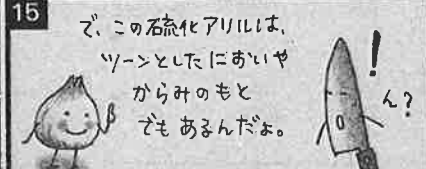 15
で、この硫化アリルは、
ツーンとしたにおいや
からみのもと
でもあるんだよ。
!
ん?